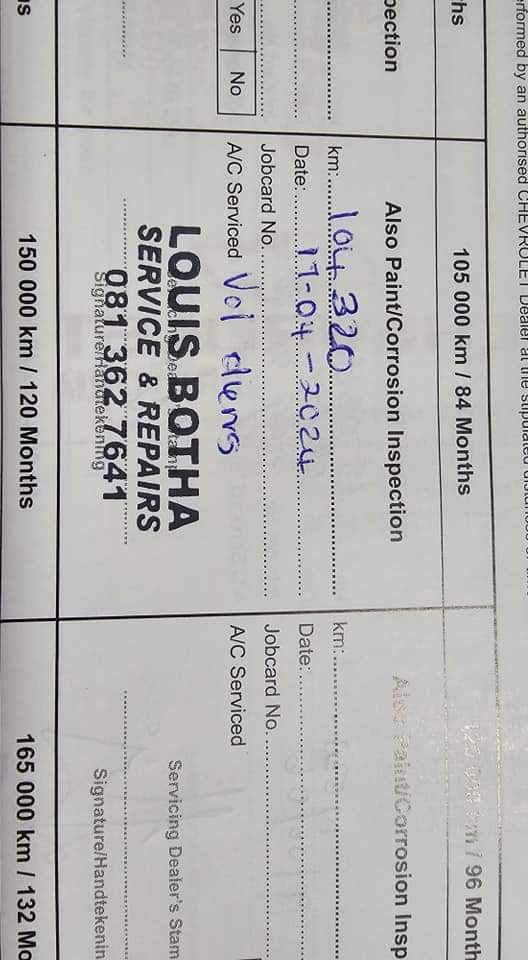 erformed by an authorised CHEVROLET Dealer at the stipulated
hs
pection
Yes
No
105 000 km / 84 Months
Also Paint/Corrosion Inspection
km: 104 320
Date: 17-04-2024
Jobcard No.
A/C Serviced Vol diens
Servicing Dealer's Stamp
LOUIS BOTHA
SERVICE & REPAIRS
081 362 7641
Signature/Handtekening
/ 96 Month
Also Paint/Corrosion Insp
km:
Date:
Jobcard No.
A/C Serviced
Servicing Dealer's Stam
Signature/Handtekenin
hs
150 000 km / 120 Months
165 000 km / 132 Mo